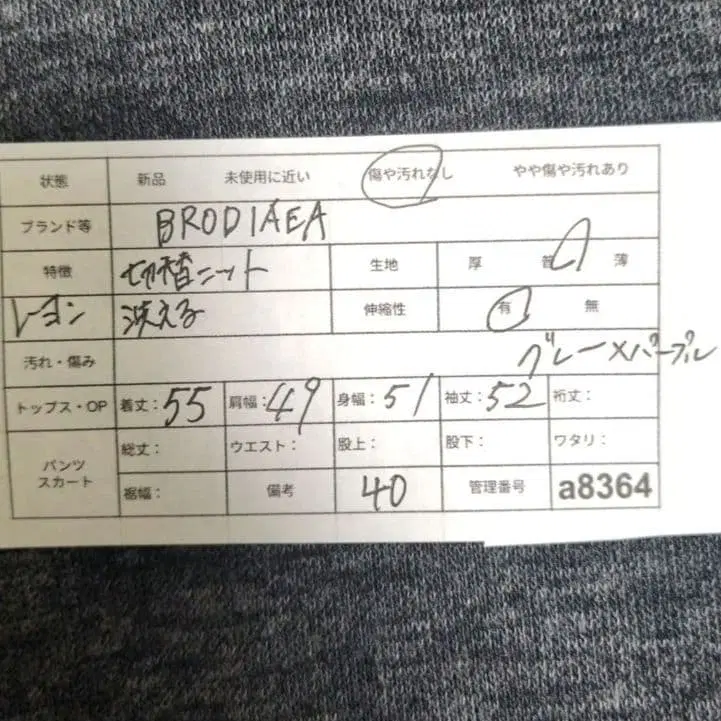 状態 新品 未使用に近い 傷や汚れなし やや傷や汚れあり
ブランド等 BRODIAEA
特徴 切替ニット 生地 厚 普 薄
レーヨン 洗える 伸縮性 有 無
汚れ・傷み グレー×パープル
トップス・OP 着丈：55 肩幅：49 身幅：51 袖丈：52 裄丈：
パンツ スカート 総丈： ウエスト： 股上： 股下： ワタリ：
裾幅： 備考 40 管理番号 a8364